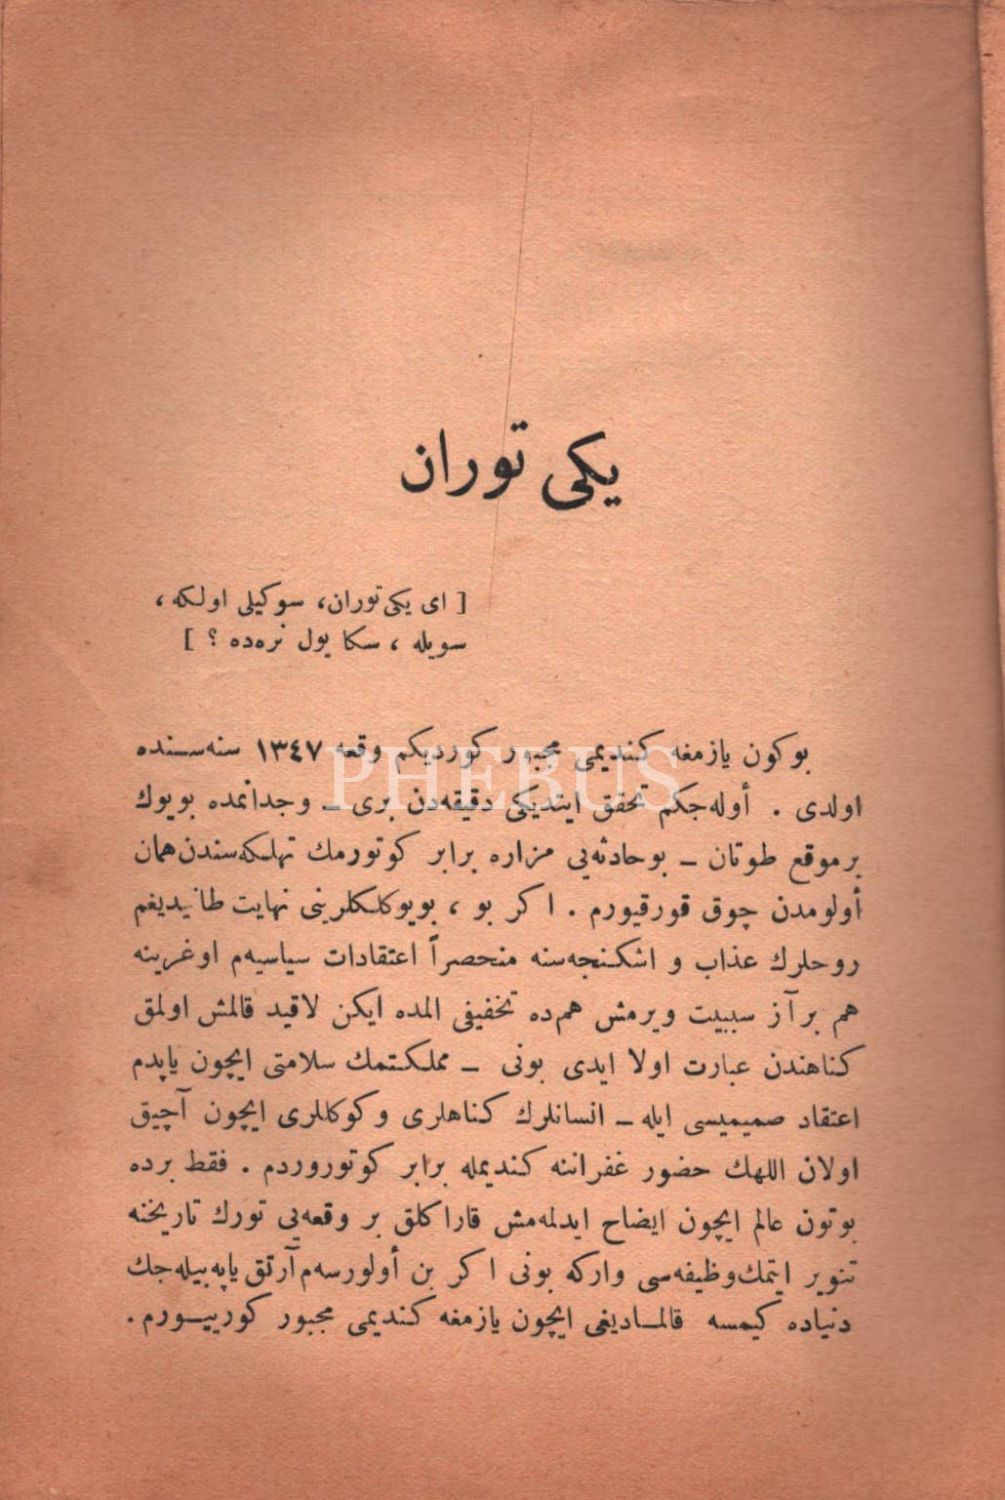 یکی توران
[ ای یکی توران، سوکیلی اولکه ،
سویله ، سکا یول نره‌ده ؟ ]
بوکون یازمغه کندیمی مجبور کوردیکم وقعه ١٣٤٧ سنه‌سنده
اولدی . أوله‌جکم تحقق ایتدیکی دقیقه‌دن بری ـ وجدانمده بویوك
برموقع طوتان ـ بوحادثه‌یی مزاره برابر کوتورمك تهلکه‌سندن همان
أولومدن چوق قورقیورم . اکر بو ، بویوکلکلرینی نهایت طانیدیغم
روحلرك عذاب و اشکنجه‌سنه منحصراً اعتقادات سیاسیه‌م اوغرینه
هم برآز سببیت ویرمش هم‌ده تخفیفی المده ایکن لاقید قالمش اولمق
کناهندن عبارت اولا ایدی بونی ـ مملکتمك سلامتی ایچون یاپدم
اعتقاد صمیمیسی ایله ـ انسانلرك کناهلری و کوکللری ایچون آچیق
اولان اللهك حضور غفراننه کندیمله برابر کوتوروردم . فقط برده
بوتون عالم ایچون ایضاح ایدلمه‌مش قاراکلق بر وقعه‌یی تورك تاریخنه
تنویر ایتمك وظیفه‌سی وارکه بونی اکر بن أولورسه‌م آرتق یاپه‌بیله‌جك
دنیاده کیمسه قالمـادیغی ایچون یازمغه کندیمی مجبور کورییـورم.
PHEBUS